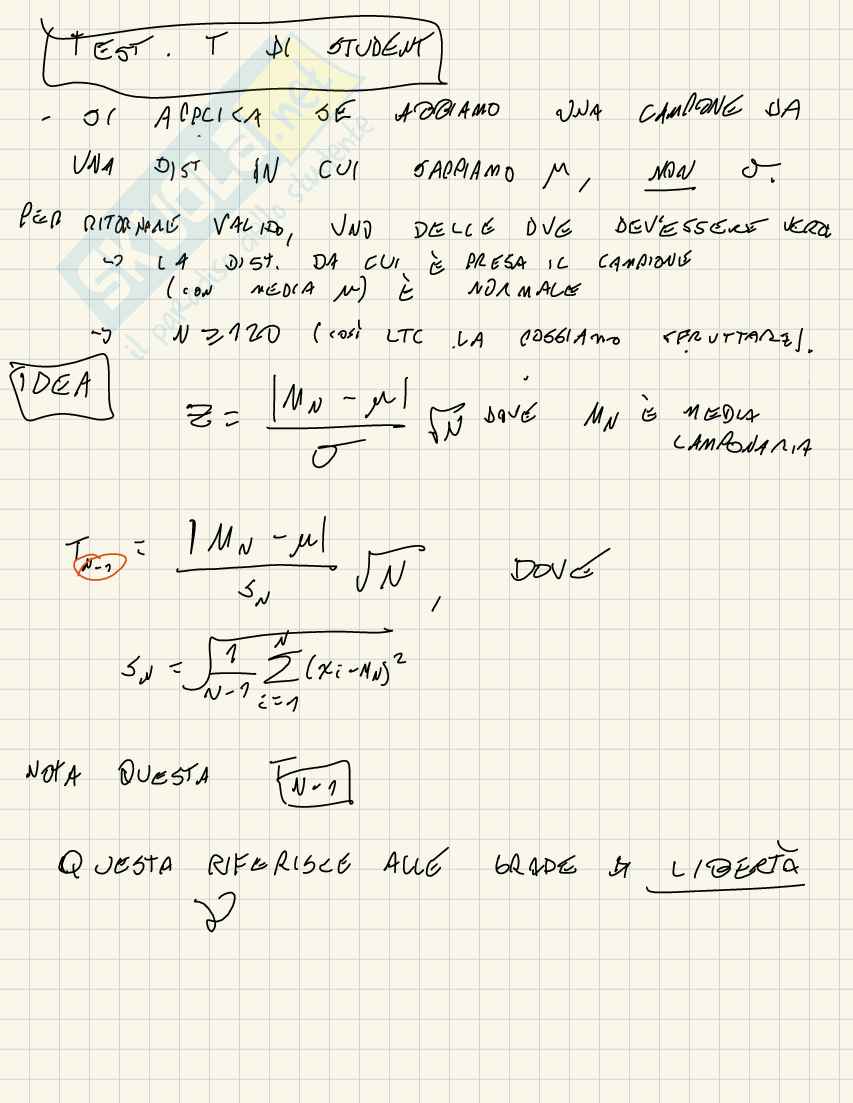 TEST. T DI STUDENT
- SI APPLICA SE ABBIAMO UNA CAMPIONE DA
UNA DIST IN CUI SAPPIAMO μ, NON σ.
PER RITORNARE VALIDO, UNO DELLE DUE DEV'ESSERE VERA
→ LA DIST. DA CUI È PRESA IL CAMPIONE
(CON MEDIA μ) È NORMALE
→ N ≥ 120 (così LTC LA POSSIAMO SFRUTTARE).
IDEA
Z = |M_N - μ| / σ √N DOVE M_N È MEDIA
CAMPONARIA
T_{N-1} = |M_N - μ| / s_N √N, DOVE
s_N = √(1/(N-1) Σ_{i=1}^{N} (x_i - M_N)²)
NOTA QUESTA T_{N-1}
QUESTA RIFERISCE ALLE GRADE DI LIBERTÀ
ν
SKUOLA.net
il paradiso dello studente